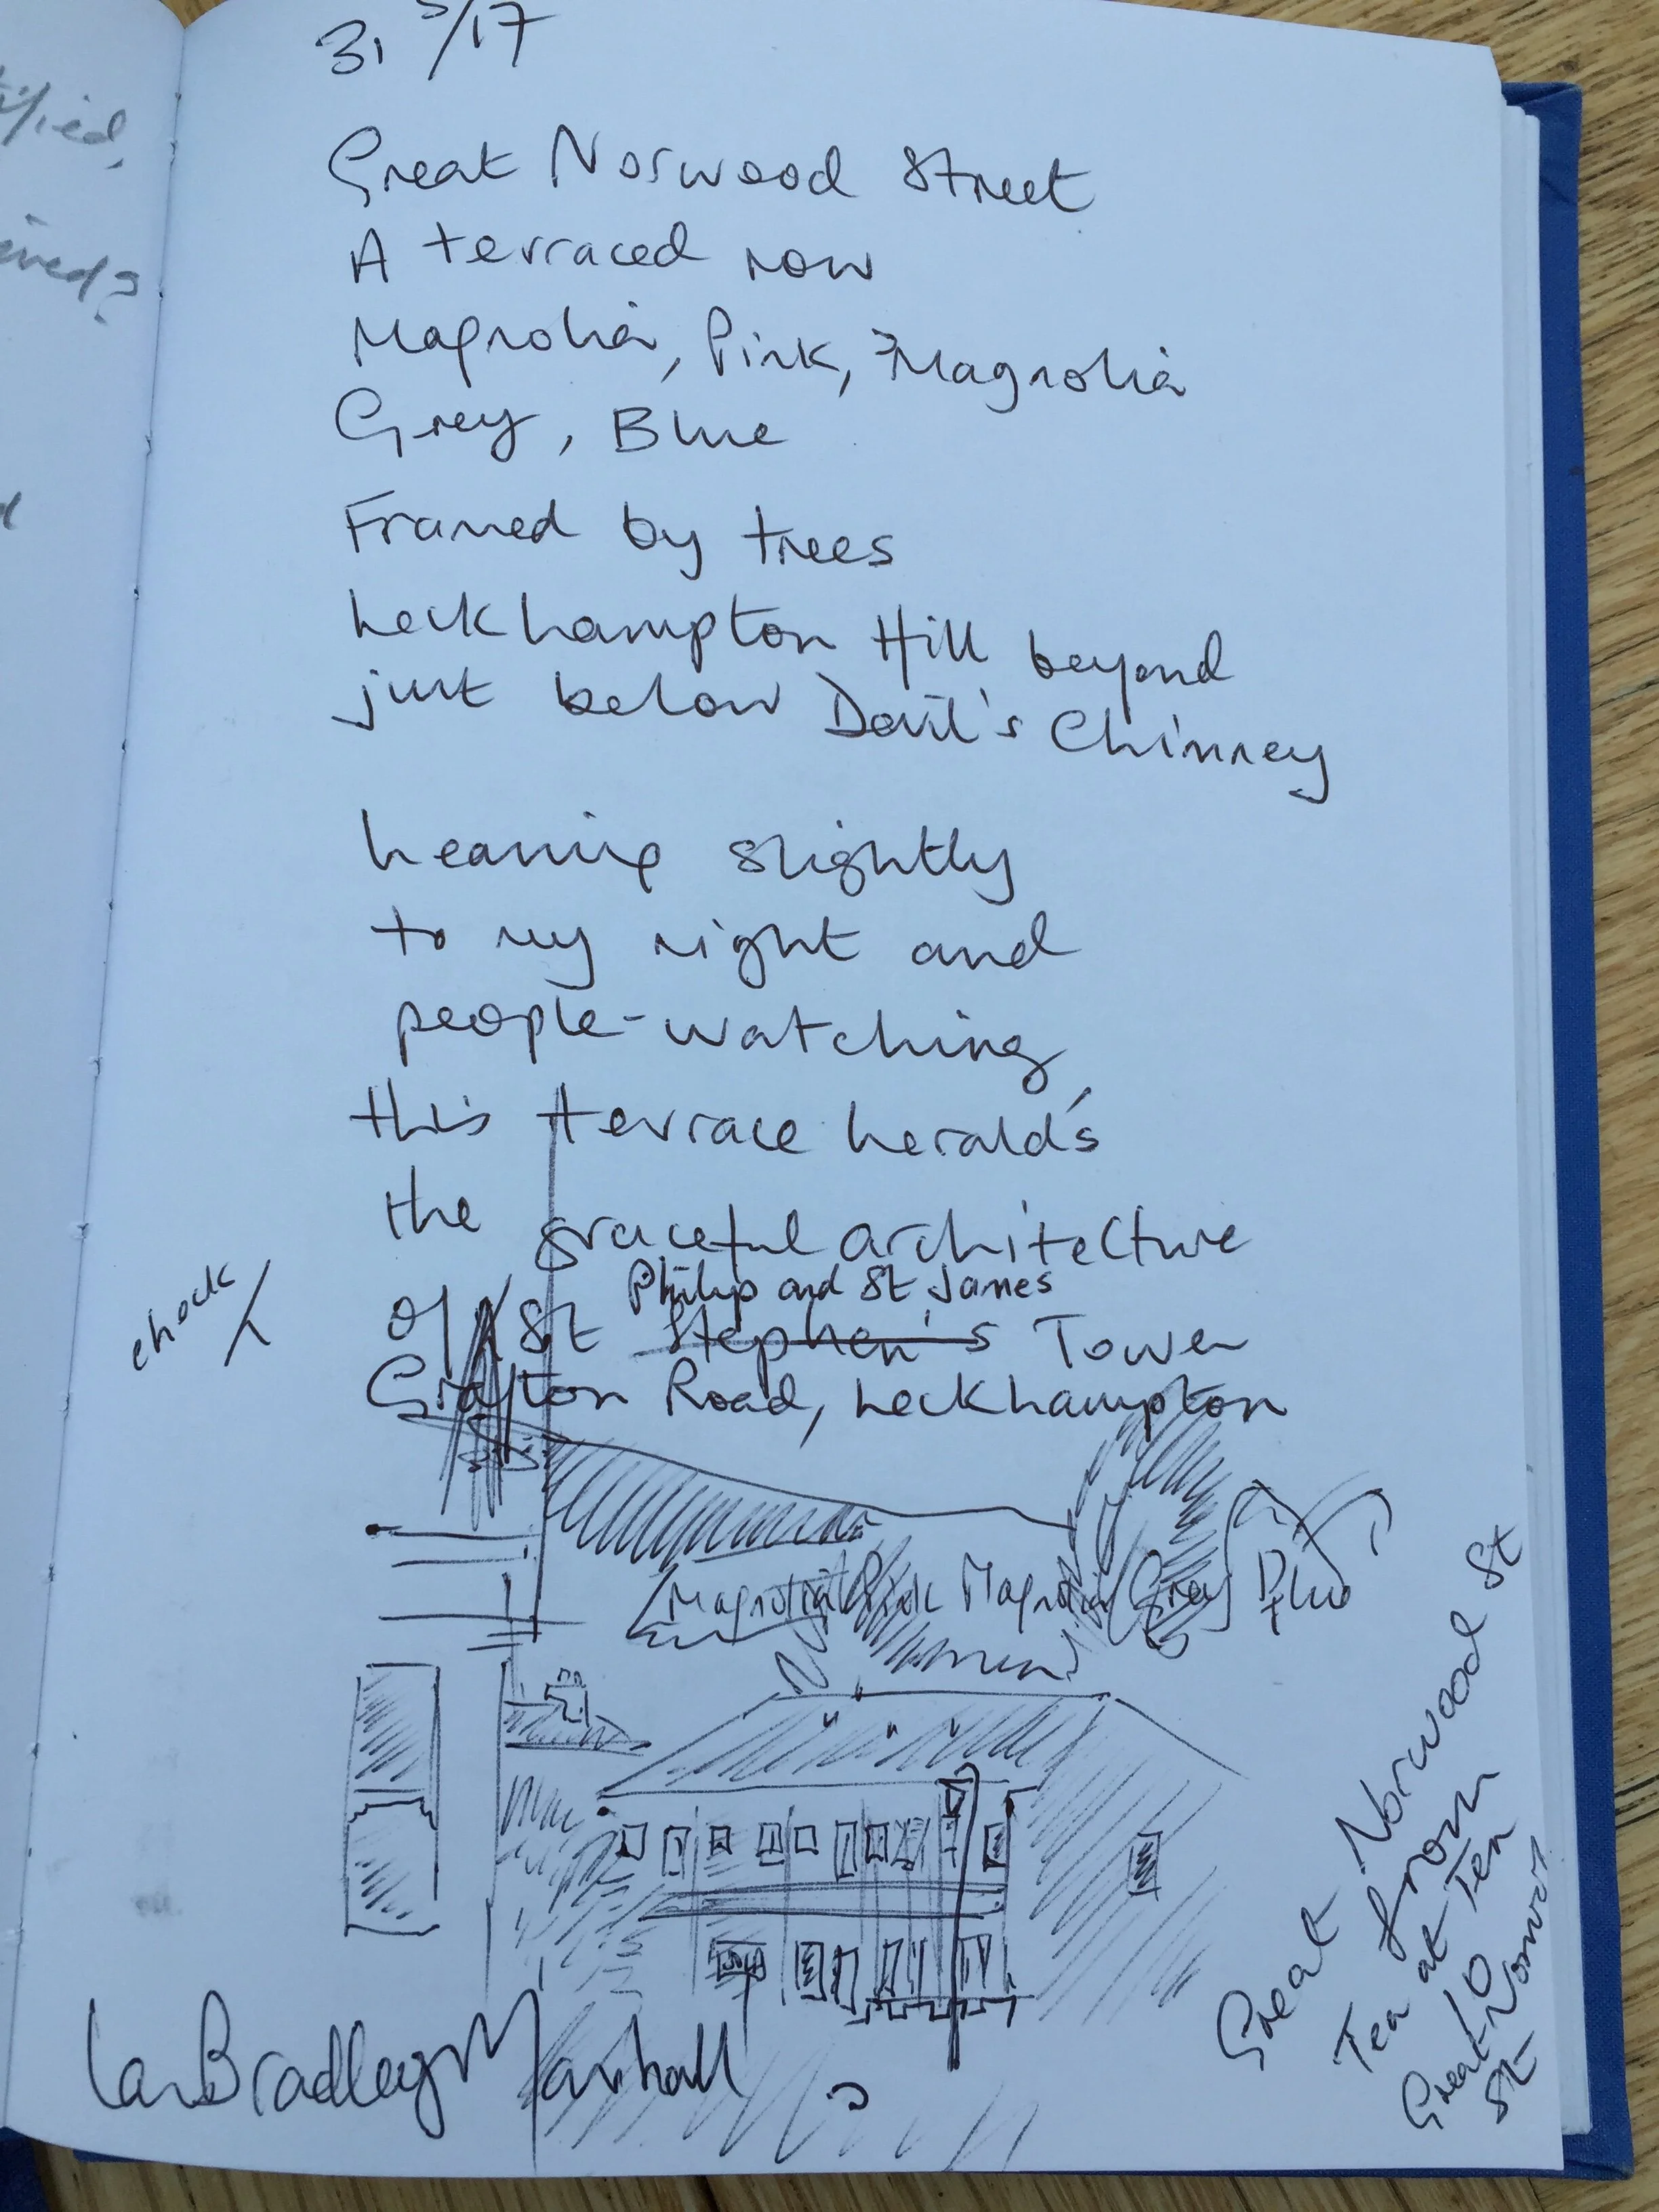 31 5/17
Great Norwood Street
A terraced row
Magnolia, Pink, Magnolia
Grey, Blue
Framed by trees
Leckhampton Hill beyond
just below Devil's Chimney
Leaning slightly
to my right and
people-watching,
this terrace heralds
the graceful architecture
Philip and St James
of St Stephen's Tower
check
Grafton Road, Leckhampton
Magnolia Pink Magnolia Grey Blue
Great Norwood St
from
Tea at Ten
10
Great Norwood
St
Ian Bradley Marshall